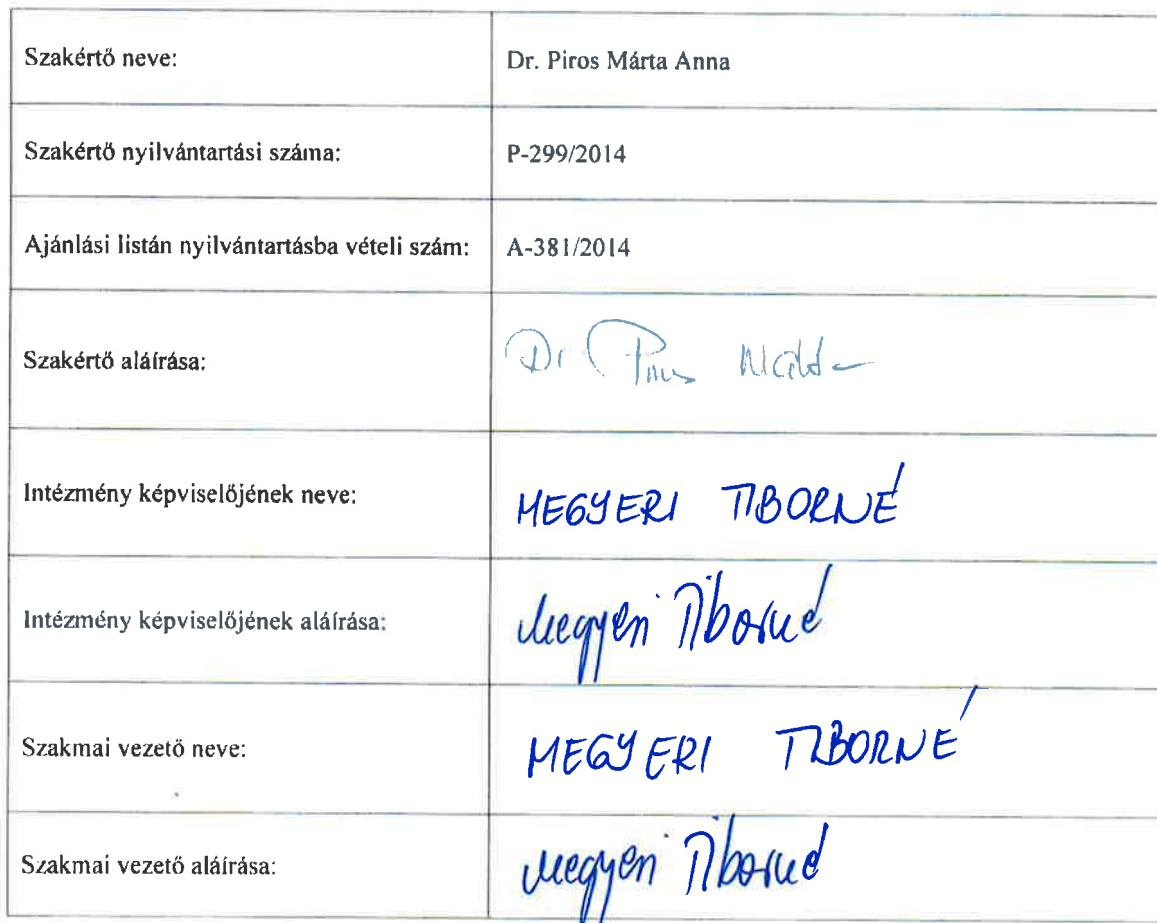 Szakértő neve: Dr. Piros Márta Anna
Szakértő nyilvántartási száma: P-299/2014
Ajánlási listán nyilvántartásba vételi szám: A-381/2014
Szakértő aláírása: Dr Piros Márta
Intézmény képviselőjének neve: MEGYERI TIBORNÉ
Intézmény képviselőjének aláírása: Megyeri Tiborné
Szakmai vezető neve: MEGYERI TIBORNÉ
Szakmai vezető aláírása: Megyeri Tiborné